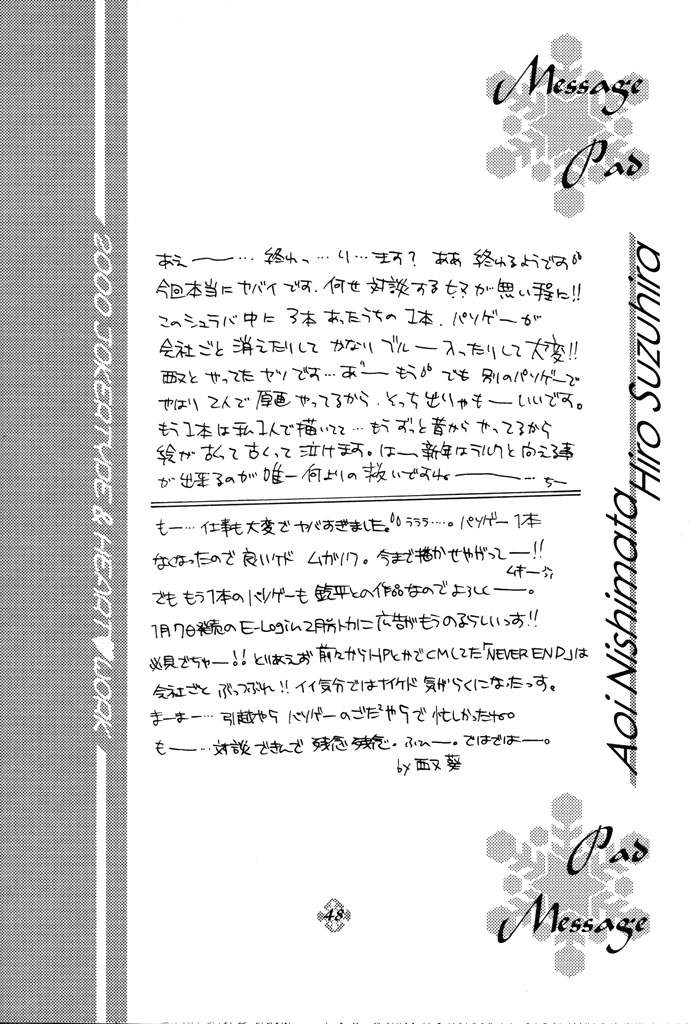 Message
Pad
あえー…終わっ…り…ます？ああ 終わるようです°°
今回本当にヤバイです。何せ 対談するヒマが無い程に!!
このシュラバ中に 3本あったうちの1本、パソゲーが
会社ごと消えたりして かなりブルー入ったりして大変!!
西又とやってたヤツです…あ゛ーもう°°でも別のパソゲーで
やはり2人で原画やってるから、そっち出りゃもーいいです。
もう1本は私1人で描いてて…もうずっと昔からやってるから
絵が古くて古くって泣けます。はー、新年はラルクと向える事
が出来るのが唯一何よりの救いですねー…
もー…仕事も大変でヤバすぎました。°°ううう…。パソゲー1本
なくなったので良いケド ムカツク。今まで描かせやがってー!!
ムキーっ
でも もう1本のパソゲーも鈴平との作品なのでよろしくー。
1月7日発売のE-Login2月号トカに広告がもうのるらしいっす!!
必見でちゃー!! とりあえず前々からHPとかでCMしてた「NEVER END」は
会社ごと ぶっつぶれ!! イイ気分ではナイケド 気がらくになたっす。
まーまー…引越やら パソゲーのごたごたやらで忙しかったね。
もー…対談できんで残念残念。ふひー。ではではー。
by 西又 葵
Hiro Suzuhira
Aoi Nishimata
2000 JOKERTYPE & HEART♥WORK
Pad
Message
48